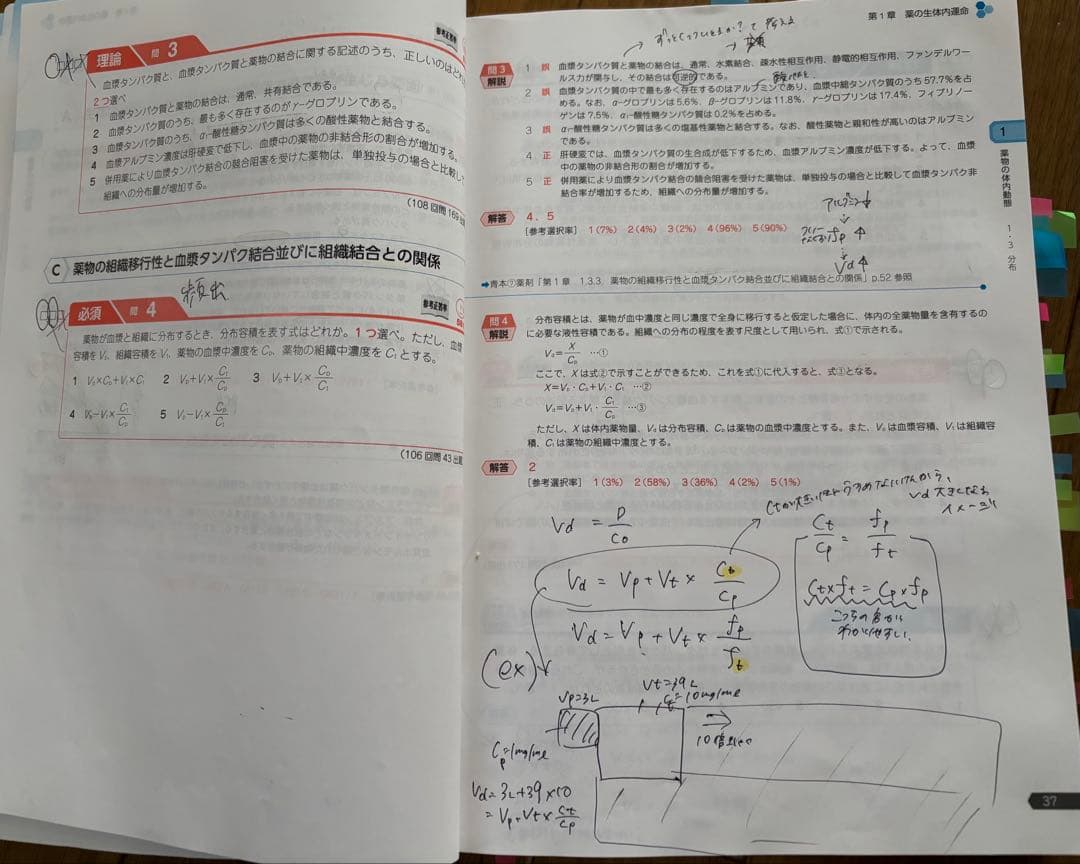 理論 問 3
参考正答率
血漿タンパク質と、血漿タンパク質と薬物の結合に関する記述のうち、正しいのはどれ
2つ選べ
1 血漿タンパク質と薬物の結合は、通常、共有結合である。
2 血漿タンパク質のうち、最も多く存在するのがγ-グロブリンである。
3 血漿タンパク質のうち、α₁-酸性糖タンパク質は多くの酸性薬物と結合する。
4 血漿アルブミン濃度は肝硬変で低下し、血漿中の薬物の非結合形の割合が増加する。
5 併用薬により血漿タンパク結合の競合阻害を受けた薬物は、単独投与の場合と比較して
組織への分布量が増加する。
(108回問169
C 薬物の組織移行性と血漿タンパク結合並びに組織結合との関係
頻出
必須 問 4
参考正答率
薬物が血漿と組織に分布するとき、分布容積を表す式はどれか。1つ選べ。ただし、血漿
容積をVp、組織容積をVt、薬物の血漿中濃度をCp、薬物の組織中濃度をCtとする。
1 Vp×Cp+Vt×Ct 2 Vp+Vt×Ct/Cp 3 Vp+Vt×Cp/Ct
4 Vp−Vt×Ct/Cp 5 Vp−Vt×Cp/Ct
(106回問43出題
第1章 薬の生体内運命
問3 解説
1 誤 血漿タンパク質と薬物の結合は、通常、水素結合、疎水性相互作用、静電的相互作用、ファンデルワー
ルス力が関与し、その結合は可逆的である。
2 誤 血漿タンパク質の中で最も多く存在するのはアルブミンであり、血漿中総タンパク質のうち57.7%を占
める。なお、α-グロブリンは5.6%、β-グロブリンは11.8%、γ-グロブリンは17.4%、フィブリノー
ゲンは7.5%、α₁-酸性糖タンパク質は0.2%を占める。
3 誤 α₁-酸性糖タンパク質は多くの塩基性薬物と結合する。なお、酸性薬物と親和性が高いのはアルブミン
である。
4 正 肝硬変では、血漿タンパク質の生合成が低下するため、血漿アルブミン濃度が低下する。よって、血漿
中の薬物の非結合形の割合が増加する。
5 正 併用薬により血漿タンパク結合の競合阻害を受けた薬物は、単独投与の場合と比較して血漿タンパク非
結合率が増加するため、組織への分布量が増加する。
解答 4.5
[参考選択率] 1(7%) 2(4%) 3(2%) 4(96%) 5(90%)
アルブミン↓
↓
fp ↑
↓
Vd ↑
➡青本①薬剤「第1章 1.3.3 薬物の組織移行性と血漿タンパク結合並びに組織結合との関係」p.52 参照
問4 解説
分布容積とは、薬物が血中濃度と同じ濃度で全身に移行すると仮定した場合に、体内の全薬物量を含有するの
に必要な液性容積である。組織への分布の程度を表す尺度として用いられ、式①で示される。
Vd=X/Cp …①
ここで、Xは式②で示すことができるため、これを式①に代入すると、式③となる。
X=Vp・Cp+Vt・Ct …②
Vd=Vp+Vt・Ct/Cp …③
ただし、Xは体内薬物量、Vdは分布容積、Cpは薬物の血漿中濃度とする。また、Vpは血漿容積、Vtは組織容
積、Ctは薬物の組織中濃度とする。
解答 2
[参考選択率] 1(3%) 2(58%) 3(36%) 4(2%) 5(1%)
Vd = D/C0
Vd = Vp + Vt × Ct/Cp
Vd = Vp + Vt × fp/ft
Ct/Cp = fp/ft
Ct×ft = Cp×fp
こっちの方が
わかりやすい。
(ex)
Vp=3L
Vt=39L
Ct=10mg/ml
Cp=1mg/ml
10倍
Vd = 3L+39×10
= Vp+Vt×Ct/Cp
1
薬物の体内動態
1・3 分布
37